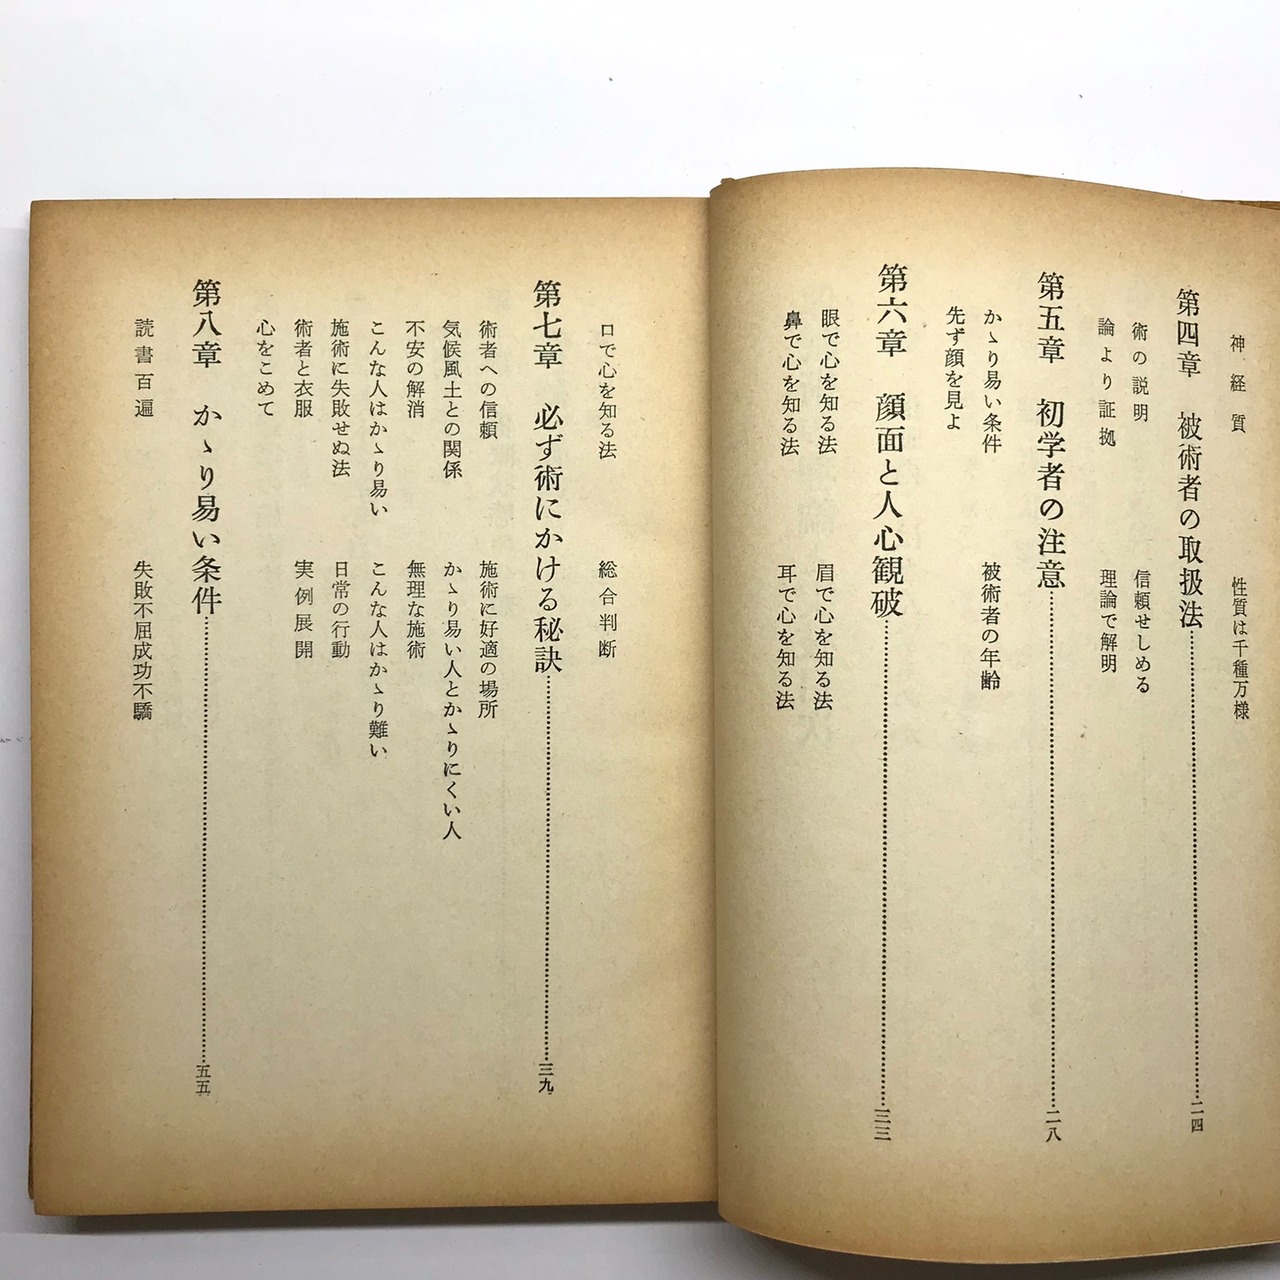 神経質　性質は千種万様
第四章　被術者の取扱法……二四
術の説明　信頼せしめる
論より証拠　理論で解明
第五章　初学者の注意……二八
かゝり易い条件　被術者の年齢
先ず顔を見よ
第六章　顔面と人心観破……三三
眼で心を知る法　眉で心を知る法
鼻で心を知る法　耳で心を知る法
口で心を知る法　総合判断
第七章　必ず術にかける秘訣……三九
術者への信頼　施術に好適の場所
気候風土との関係　かゝり易い人とかゝりにくい人
不安の解消　無理な施術
こんな人はかゝり易い　こんな人はかゝり難い
施術に失敗せぬ法　日常の行動
術者と衣服　実例展開
心をこめて
第八章　かゝり易い条件……五五
読書百遍　失敗不屈成功不驕